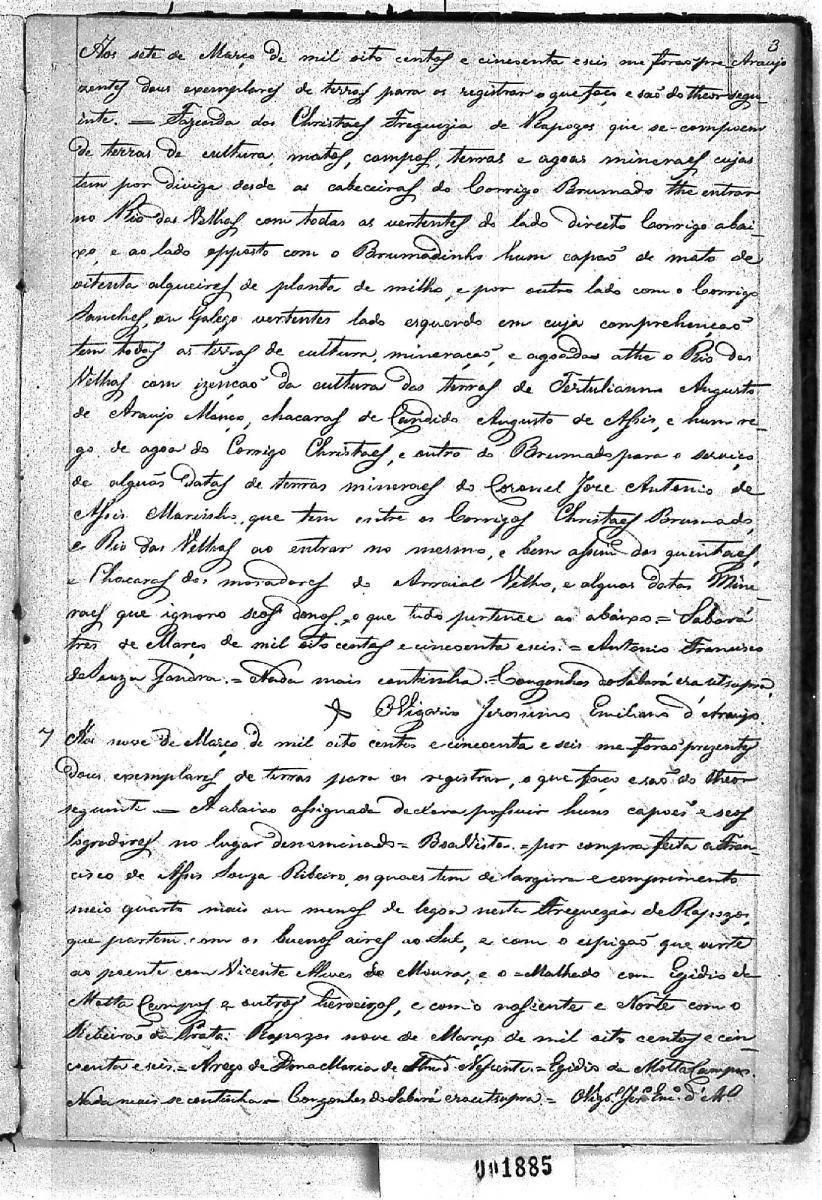 3
Araujo
Aos sete de Março de mil oito centos e cincoenta e seis me forão pre
zentes dous exemplares de terras para os registrar o que faço e são do theor segu-
inte. — Fazenda dos Christaes Freguezia de Rapozos que se compoem
de terras de cultura, matos, campos, terras e agoas mineraes cujas
tem por diviza desde as cabeceiras do Corrigo Brumado the entrar
no Rio das Velhas com todas as vertentes do lado direito Corrigo abai-
xo, e ao lado opposto com o Brumadinho hum capão de mato de
oitenta alqueires de planta de milho, e por outro lado com o Corrigo
Sanches, ou Galego vertentes lado esquerdo em cuja comprehenção
tem todas as terras de cultura, mineração, e agoadas athe o Rio das
Velhas com izenção da cultura das terras de Tertulianno Augusto
de Araujo Maço, chacaras de Candido Augusto de Assis, e hum re-
go de agoa do Corrigo Christaes, e outro do Brumado para o serviço
de alguãs datas de terras mineraes do Coronel Joze Antonio de
Assis, que tem entre os Corrigos Christaes Brumado,
e Rio das Velhas ao entrar no mesmo, e bem assim dos quintaes,
e Chacaras dos moradores do Arraial Velho, e alguas datas Mine-
raes que ignoro seos donos, o que tudo pertence ao abaixo = Sabará
tres de Março de mil oito centos e cincoenta e seis. = Antonio Francisco
de Souza Gandra. = Nada mais continha. = Congonhas do Sabará era ut supra
O Vigario Jeronimo Emiliano d'Araujo.
7 Aos nove de Março de mil oito centos e cincoenta e seis me forão prezentes
dous exemplares de terras para os registrar, o que faço e são do theor
seguinte — A abaixo assignada declara possuir huns capoes e seos
logradores no lugar denominado = Boa Vista = por compra feita a Fran-
cisco de Assis Souza Ribeiro, os quaes tem de largura e comprimento
meio quarto mais ou menos de legoa nesta Freguezia de Rapozos,
que partem com os buenos aires ao Sul, e com o espigão que verte
ao poente com Vicente Alves de Moura, e o = Malhado com Egidio da
Motta Campos e outros herdeiros, e com o nassente e Norte com o
Ribeirão da Prata. Rapozos nove de Março de mil oito centos e cin-
coenta e seis. = Arogo de Dona Maria de = Egidio da Motta Campos.
Nada mais se continha = Congonhas do Sabará era ut supra =
001885